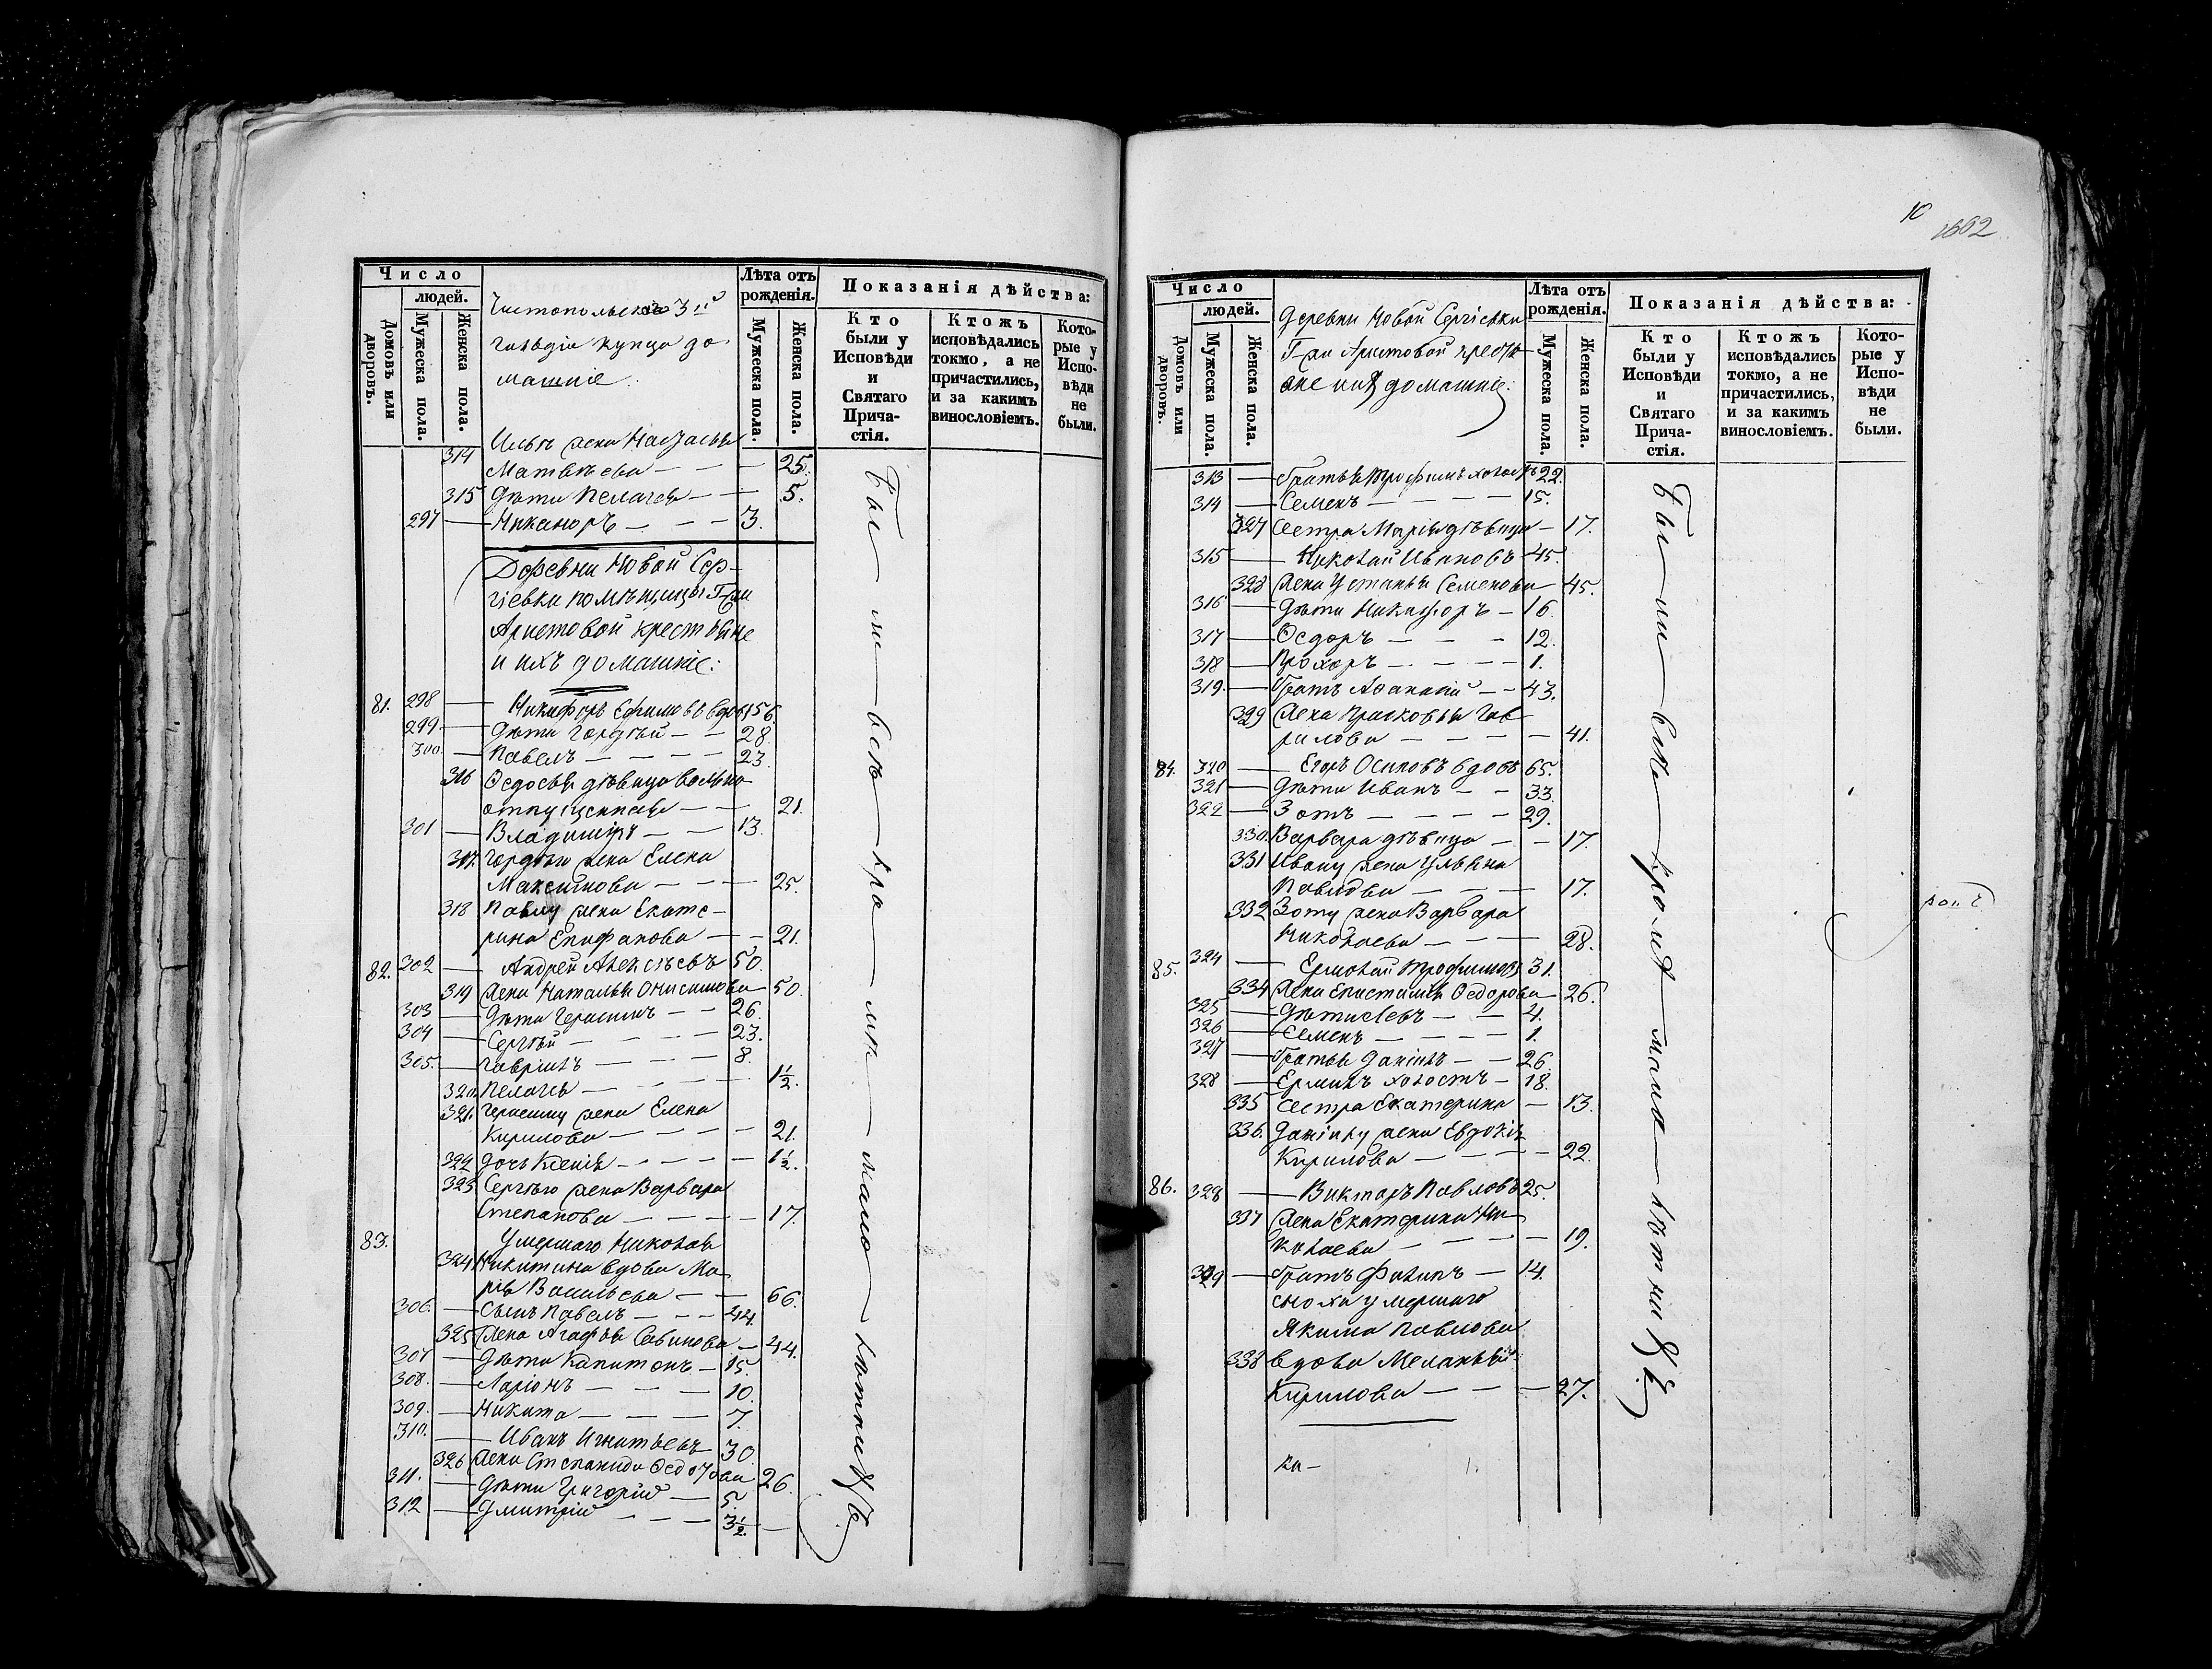 Число
людей.
Домовъ или дворовъ.
Мужеска пола.
Женска пола.
Чистопольскаго 3ей
гильдіи купца до
машніе:
Лѣта отъ
рожденія.
Мужеска пола.
Женска пола.
Показанія дѣйства:
Кто
были у
Исповѣди
и
Святаго
Прича-
стія.
Ктожъ
исповѣдались
токмо, а не
причастились,
и за какимъ
винословіемъ.
Кото-
рые у
Испо-
вѣди
не
были.
314 Ильѣ жена Настасья
Матвѣева — — — 25.
315 Дѣти Пелагея — — 5.
297 — Никаноръ — — — 3.
Деревни Новой Сер-
гіевки помѣщицы Г-жи
Аристовой крестьяне
и ихъ домашніе:
81. 298 — Никифоръ Ефимовъ вдовъ 56.
299. — Дѣти Гордѣй — — 28.
300. — Павелъ — — — 23.
316 Ѳедосья дѣвица вольно-
отпущенная — — 21.
301 — Владиміръ — — 13.
317. Гордѣя жена Елена
Максимова — — — 25.
318 Павлу жена Екате-
рина Епифанова — — 21.
82. 302 — Андрей Алексѣевъ 50.
319 Жена Наталья Онисимова 50.
303 — Дѣти Герасимъ — — 26.
304 — Сергѣй — — — — 23.
305. — Гавріилъ — — — 8.
320. Пелагея — — — — 1½.
321. Герасиму жена Елена
Кирилова — — — — 21.
322 Дочь Ксенія — — — — 1½.
323 Сергѣю жена Варвара
Степанова — — — — 17.
83. Умершаго Николая
324 Никитина вдова Ма-
рія Васильева — — 66.
306. — Сынъ Павелъ — — 44.
325 Жена Агафья Савинова — 44.
307 — Дѣти Капитонъ — 15.
308. — Ларіонъ — — — 10.
309. — Никита — — — 7.
310. — Иванъ Игнатьевъ 30.
326 Жена Степанида Ѳедотова 26.
311. — Дѣти Григорій — 5.
312 — Дмитрій — — — 3½.
Бы — ли — всѣ — кро — мѣ — мало — лѣтнихъ
10
1662
Число
людей.
Домовъ или дворовъ.
Мужеска пола.
Женска пола.
Деревни Новой Сергіевки
Г-жи Аристовой кресть-
яне ихъ домашніе:
Лѣта отъ
рожденія.
Мужеска пола.
Женска пола.
Показанія дѣйства:
Кто
были у
Исповѣди
и
Святаго
Прича-
стія.
Ктожъ
исповѣдались
токмо, а не
причастились,
и за какимъ
винословіемъ.
Кото-
рые у
Испо-
вѣди
не
были.
313 — Братья Трофимъ холостъ 22.
314 — Семенъ — — — — 15.
327 Сестра Марія дѣвица — 17.
315 — Николай Ивановъ 45.
328 Жена Устинья Семенова — 45.
316 — Дѣти Никифоръ — 16.
317 — Ѳедоръ — — — 12.
318 — Прохоръ — — — — 1.
319. — Братъ Аѳанасій — — 43.
329 Жена Прасковья Гав-
рилова — — — — — 41.
84. 320 — Егоръ Осиповъ вдовъ 65.
321 — Дѣти Иванъ — — 33.
322 — Зотъ — — — — 29.
330. Варвара дѣвица — — 17.
331 Ивану жена Ульяна
Павлова — — — — 17.
332 Зоту жена Варвара
Николаева — — — 28.
85. 324 — Ермолай Трофимовъ 31.
334 Жена Епистимія Ѳедорова — 26.
325 — Дѣти Левъ — — 4.
326 — Семенъ — — — — 1.
327 — Братья Даніилъ — — 26.
328 — Ермилъ холостъ — 18.
335 Сестра Екатерина — 13.
336. Даніилу жена Евдокія
Кирилова — — — — 22.
86. 328 — Викторъ Павловъ 25.
337 Жена Екатерина Ни-
колаева — — — — 19.
329 — Братъ Филипъ — 14.
сноха умершаго
Якима Павлова
338 вдова Меланья
Кирилова — — — — 27.
Бы — ли — всѣ — кромѣ — мало — лѣтнихъ